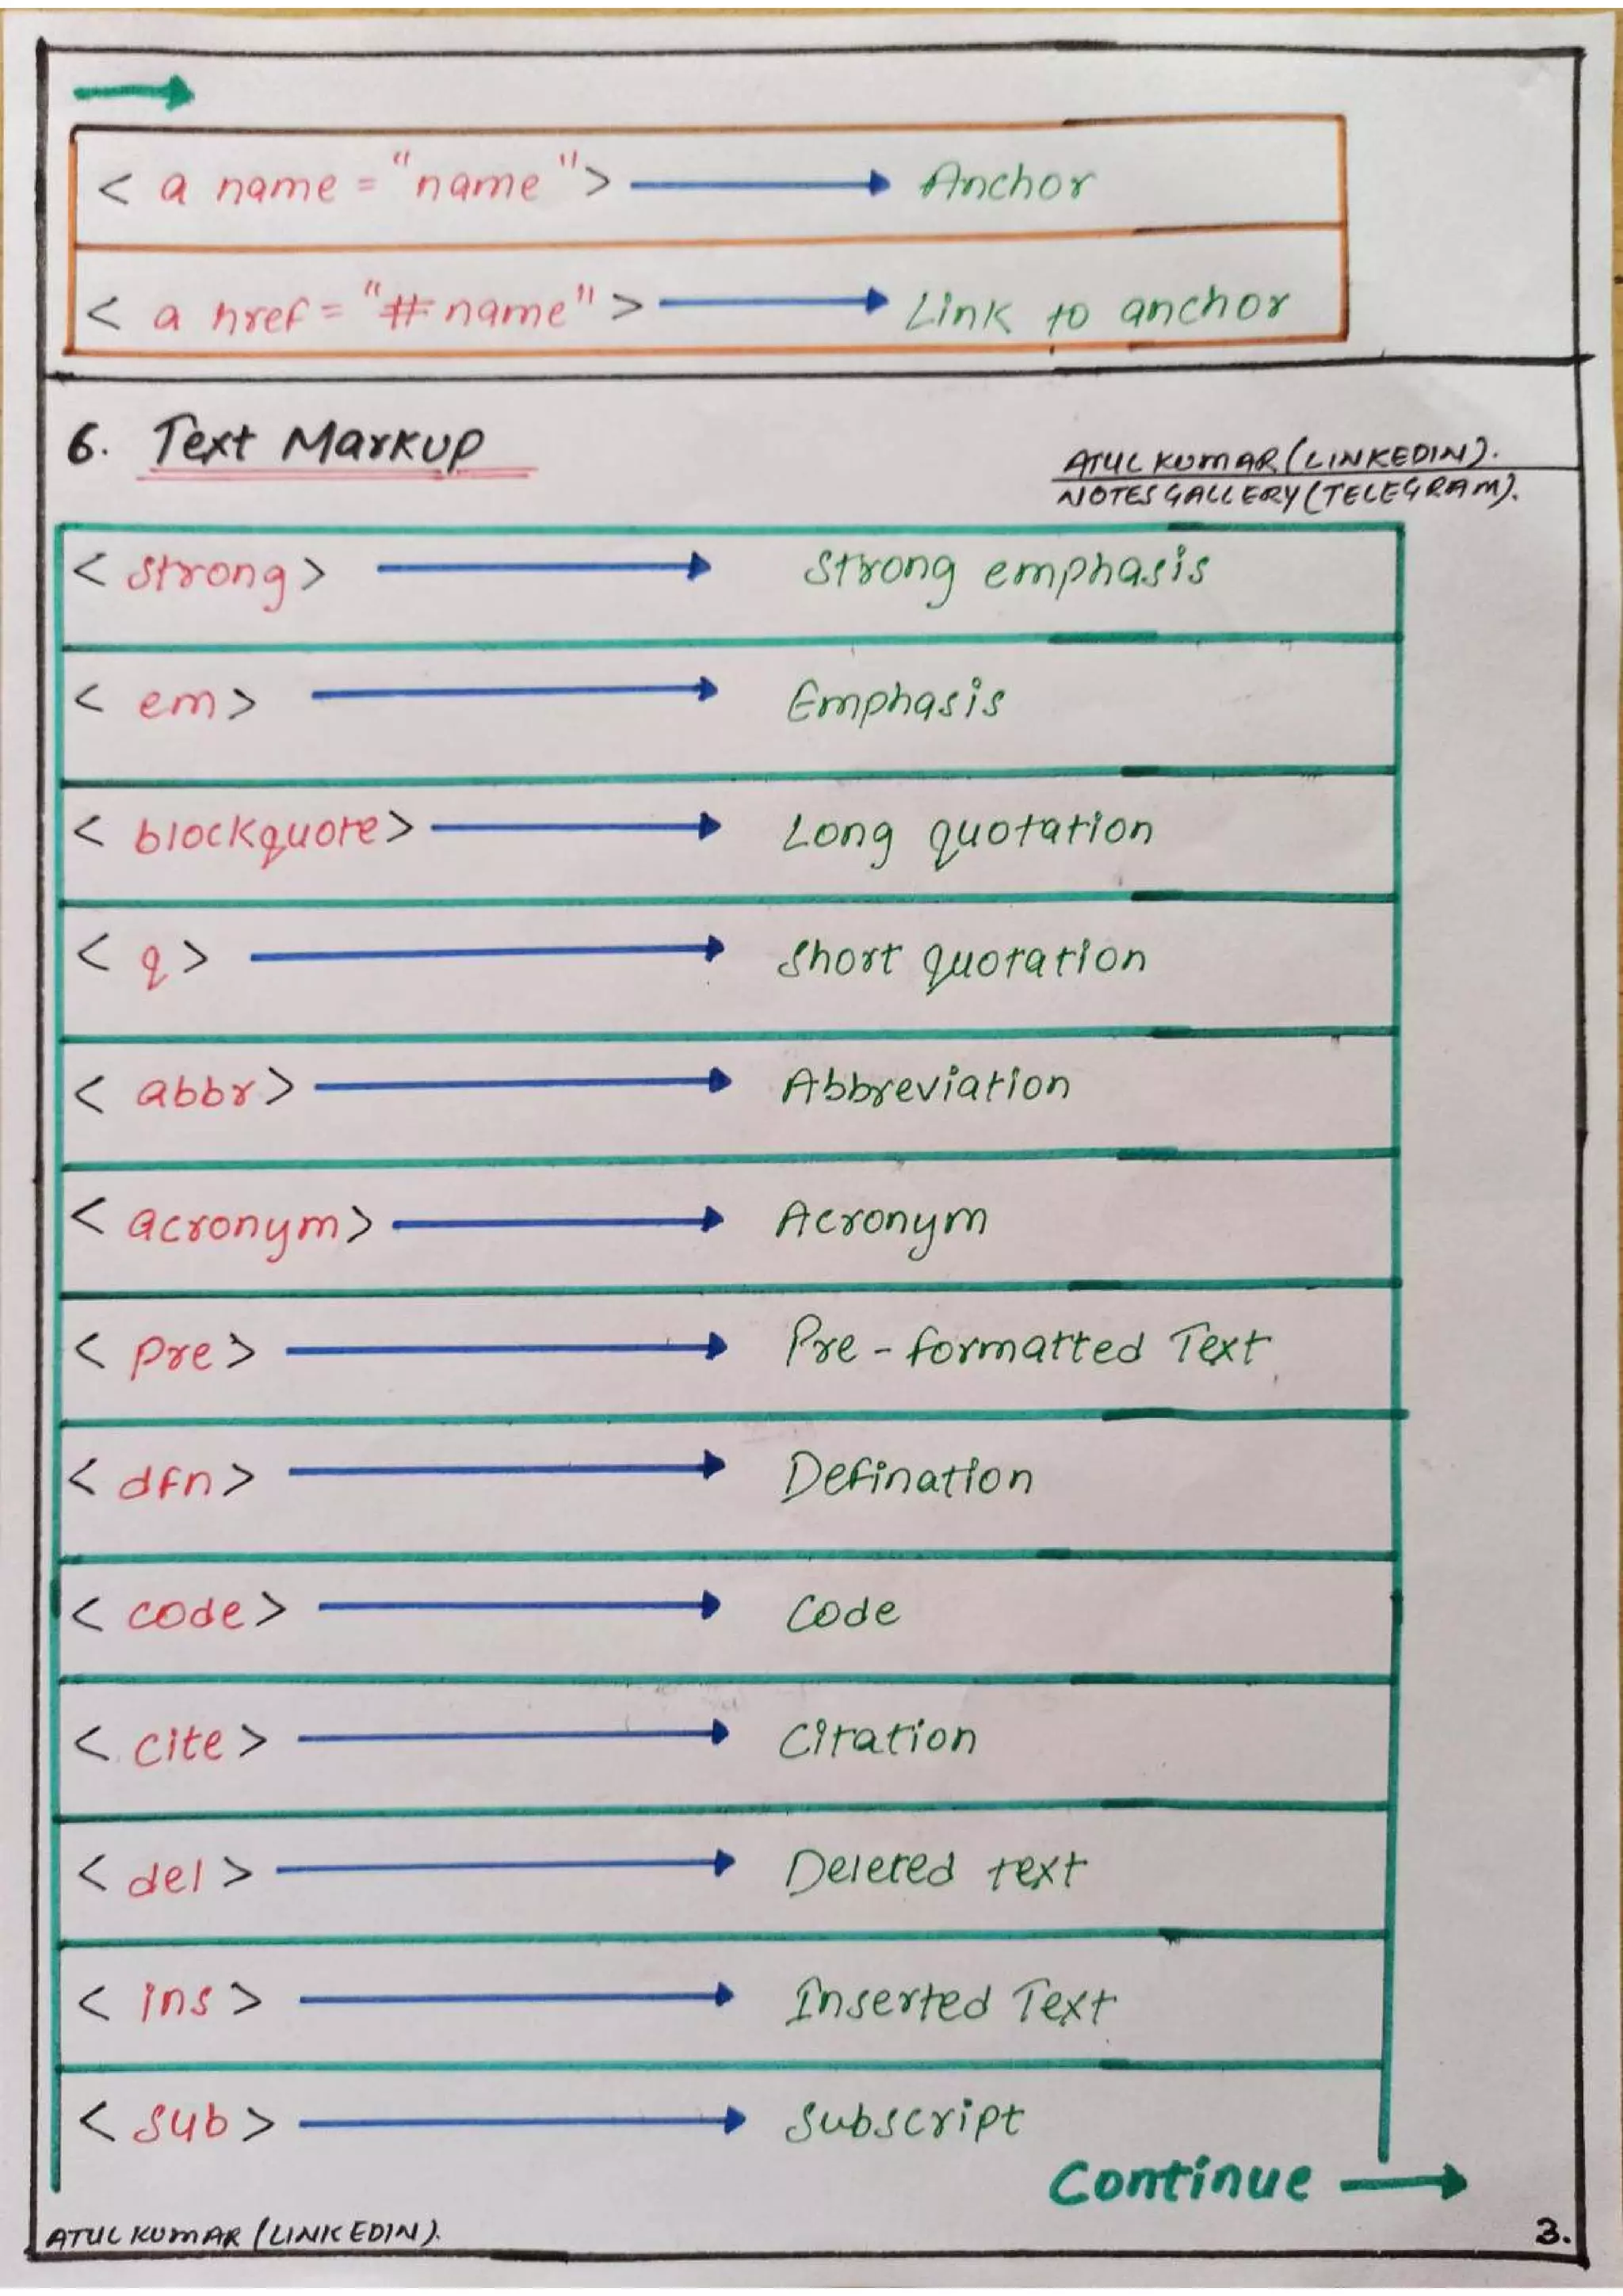 < a name = "name"> Anchor
< a href = "#name"> Link to anchor
6. Text Markup
ATUL KUMAR (LINKEDIN).
NOTES GALLERY (TELEGRAM).
< strong> Strong emphasis
< em> Emphasis
< blockquote> Long quotation
< q> Short quotation
< abbr> Abbreviation
< acronym> Acronym
< pre> Pre - formatted Text
< dfn> Defination
< code> Code
< cite> Citation
< del> Deleted text
< ins> Inserted Text
< sub> Subscript
Continue
ATUL KUMAR (LINKEDIN).
3.